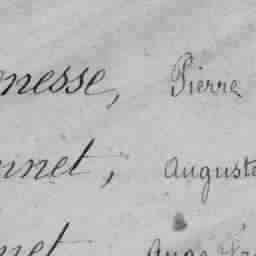 nesse, Pierre
nnet, Auguste
net